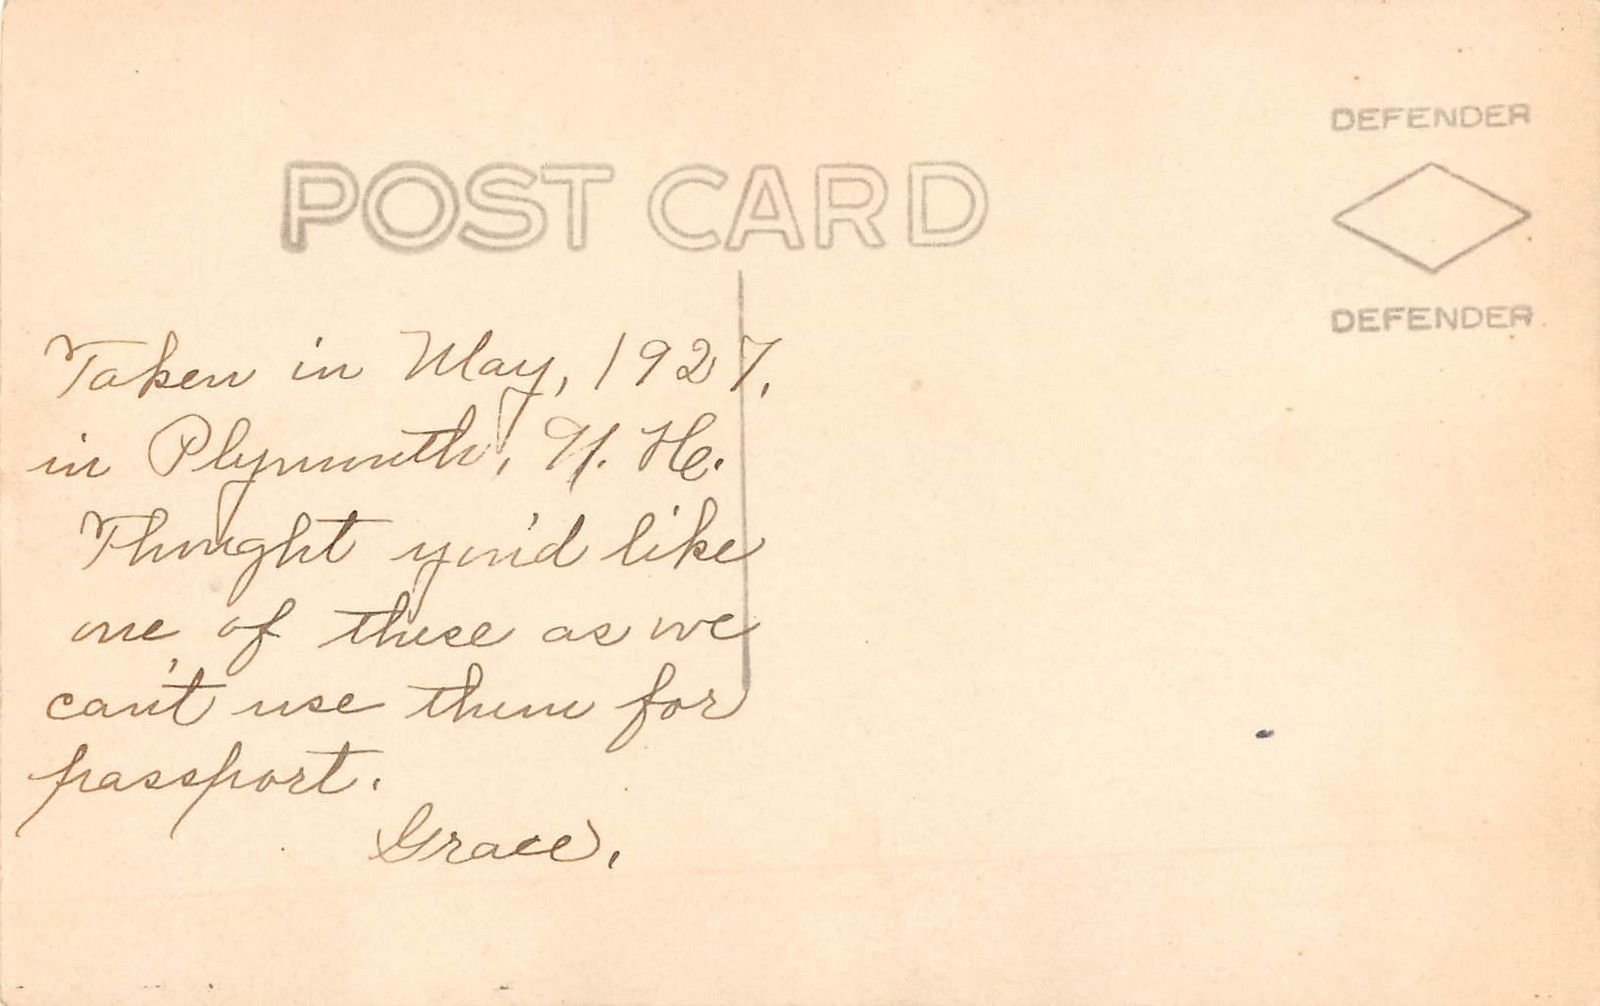 DEFENDER
POST CARD
DEFENDER
Taken in May, 1927,
in Plymouth, N. H.
Thought you'd like
one of these as we
can't use them for
passport.
Grace.